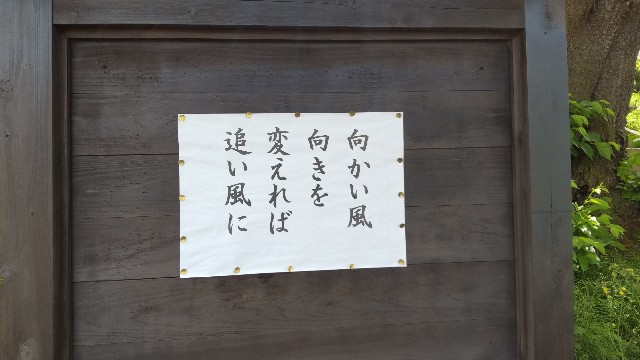 向かい風
向きを
変えれば
追い風に